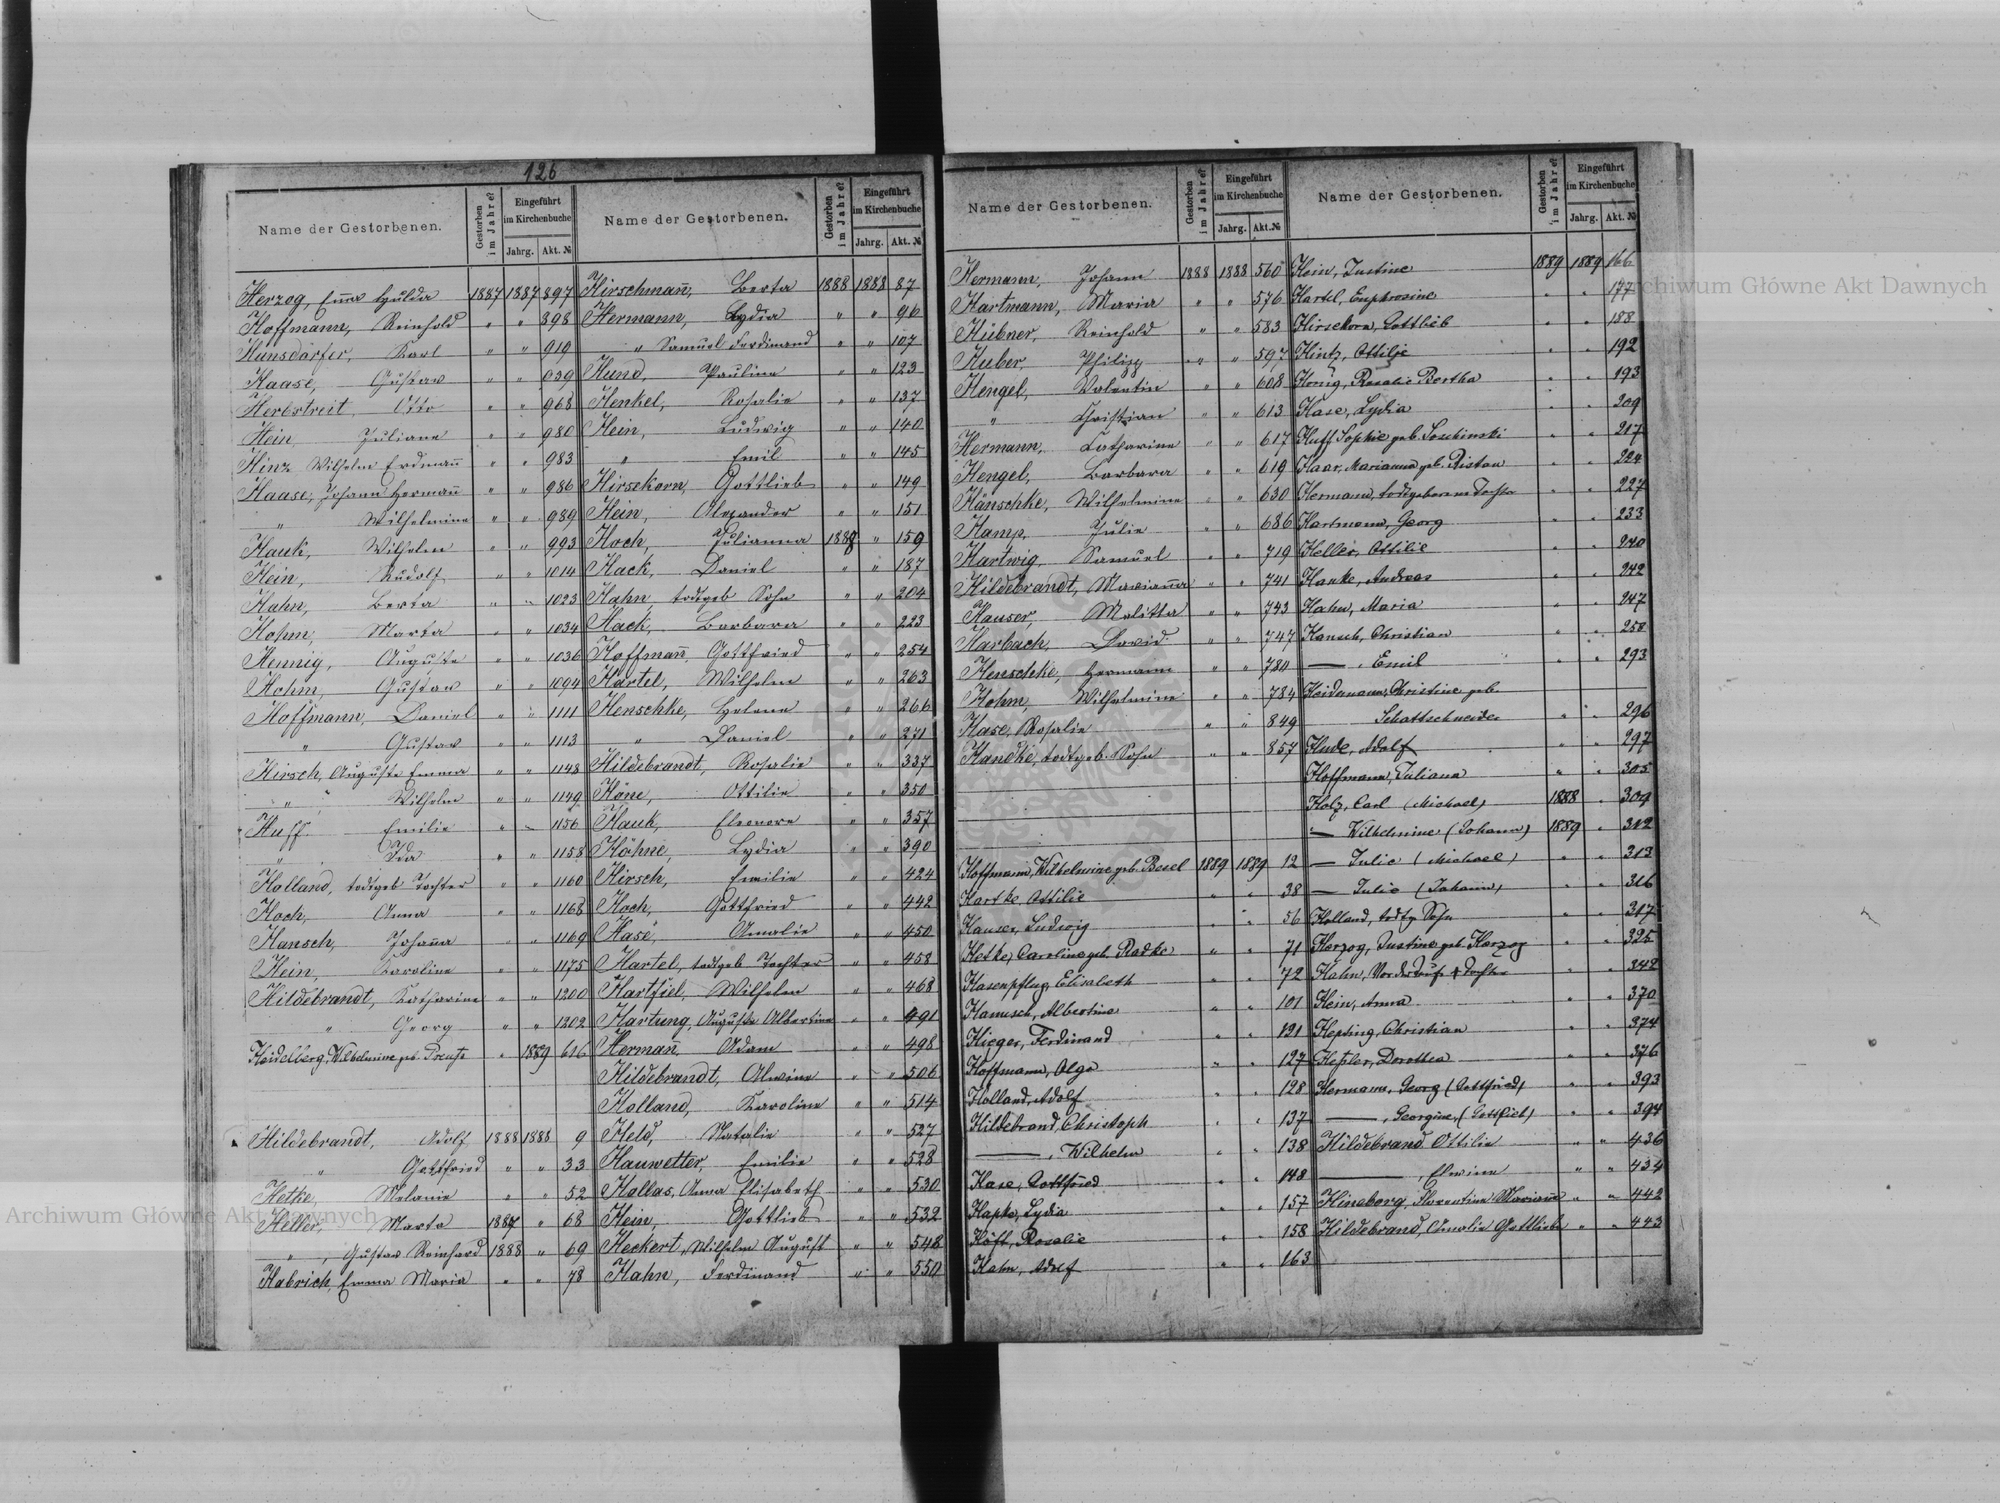 126
Name der Gestorbenen. Gestorben im Jahre? Eingeführt im Kirchenbuche Jahrg. Akt. №
Herzog, Emā Hulda 1887 1887 897
Hoffmann, Reinhold " " 898
Hunsdörfer, Karl " " 919
Haase, Gustav " " 939
Herbstreit, Otto " " 968
Hein, Juliane " " 980
Hinz Wilhelm Erdmañ " " 983
Haase, Johann Hermañ " " 986
" Wilhelmine " " 989
Hauk, Wilhelm " " 993
Hein, Rudolf " " 1014
Hahn, Berta " " 1023
Hohm, Marta " " 1034
Hennig, Auguste " " 1036
Hohm, Gustav " " 1094
Hoffmann, Daniel " " 1111
" Gustav " " 1113
Hirsch, Auguste Emma " " 1148
" Wilhelm " " 1149
Huff Emilie " " 1156
" Ida " " 1158
Holland, todtgeb Tochter " " 1160
Hoch, Anna " " 1168
Hansch, Johaña " " 1169
Hein, Karoline " " 1175
Hildebrandt, Katharine " " 1200
" Georg " " 1202
Heidelberg, Wilhelmine geb. " 1889 616
Hildebrandt, Adolf 1888 1888 9
" Gottfried " " 33
Hetke, Melanie " " 52
Heller, Marta 1887 " 68
" , Gustav Reinhard 1888 " 69
Habrich, Emma Maria " " 78
Name der Gestorbenen. Gestorben im Jahre? Eingeführt im Kirchenbuche Jahrg. Akt. №
Hirschmañ, Berta 1888 1888 87
Hermann, Lydia " " 96
" Samuel Ferdinand " " 107
Hund, Pauline " " 123
Henkel, Rosalie " " 137
Hein, Ludwig " " 140
" Emil " " 145
Hirsekorn, Gottlieb " " 149
Hein, Alexander " " 151
Hoch, Julianna 1888 " 159
Hack, Daniel " " 187
Hahn, todtgeb Sohn " " 204
Hack, Barbara " " 223
Hoffmañ, Gottfried " " 254
Härtel, Wilhelm " " 263
Henschke, Helene " " 266
" Daniel " " 271
Hildebrandt, Rosalie " " 337
Höne, Ottilie " " 350
Hauk, Eleonore " " 357
Höhne, Lydia " " 390
Hirsch, Emilie " " 424
Hoch, Gottfried " " 442
Hase, Amalie " " 450
Hartel, todtgeb Tochter " " 458
Hartfiel, Wilhelm " " 468
Hartung, Auguste Albertine " " 491
Hermañ, Adam " " 498
Hildebrandt, Alwine " " 506
Holland, Karoline " " 514
Held, Natalie " " 527
Hauwetter, Emilie " " 528
Hallas, Anna Elisabeth " " 530
Hein, Gottlieb " " 532
Heckert, Wilhelm August " " 548
Hahn, Ferdinand " " 550
Name der Gestorbenen. Gestorben im Jahre? Eingeführt im Kirchenbuche Jahrg. Akt. №
Hermann, Johann 1888 1888 560
Hartmann, Maria " " 576
Hübner, Reinhold " " 583
Huber, Philipp " " 597
Hengel, Valentin " " 608
" Christian " " 613
Hermann, Catharine " " 617
Hengel, Barbara " " 619
Hänschke, Wilhelmine " " 630
Hamp, Julie " " 686
Hartwig, Samuel " " 719
Hildebrandt, Mariaña " " 741
Hauser, Malitta " " 743
Harbach, David " " 747
Henschke, Hermann " " 780
Hohm, Wilhelmine " " 784
Hase, Rosalie " " 849
Handke, todtgeb. Sohn " " 857
Hoffmann, Wilhelmine geb. Besel 1889 1889 12
Hartke, Ottilie " " 38
Hauser, Ludwig " " 56
Hetke, Caroline geb. Radke " " 71
Hasenpflug Elisabeth " " 72
Hanusch, Albertine " " 101
Hieger, Ferdinand " " 121
Hoffmann, Olga " " 127
Holland, Adolf " " 128
Hildebrand, Christoph " " 137
— , Wilhelm " " 138
Hase, Gottfried " " 148
Hapke, Lydia " " 157
Höft, Rosalie " " 158
Hahn, Adolf " " 163
Name der Gestorbenen. Gestorben im Jahre? Eingeführt im Kirchenbuche Jahrg. Akt. №
Hein, Justine 1889 1889 166
Hartel, Euphrosine " " 177
Hirsekorn, Gottlieb " " 188
Hintz, Ottilje " " 192
Honig, Rosalie Bertha " " 193
Hase, Lydia " " 209
Huff Sophie geb. Soschinski " " 217
Haar, Marianna geb. Ristau " " 224
Hermann, todtgeborene Tochter " " 227
Hartmann, Georg " " 233
Heller, Ottilie " " 240
Hanke, Andreas " " 242
Hahn, Maria " " 247
Hansch, Christian " " 250
— , Emil " " 293
Heidemann, Christine geb.
Schattschneider " " 296
Hude, Adolf " " 297
Hoffmann, Juliana " " 305
Holz, Carl (Michael) 1888 " 309
— Wilhelmine (Johann) 1889 " 312
— Julie (Michael) " " 313
— Julie (Johann) " " 316
Holland, todtg Sohn " " 317
Herzog, Justine geb. Herzog " " 325
Hahn, Tochter " " 342
Hein, Anna " " 370
Hepting, Christian " " 374
Heßler, Dorothea " " 376
Hermann, Georg (Gottfried) " " 393
— , Georgine, (Gottlieb) " " 394
Hildebrand Ottilie " " 436
— , Elwine " " 434
Hineborg, Florentine Mariañe " " 442
Hildebrand, Amalie Gottliebe " " 443
Archiwum Główne Akt Dawnych
Archiwum Główne Akt Dawnych